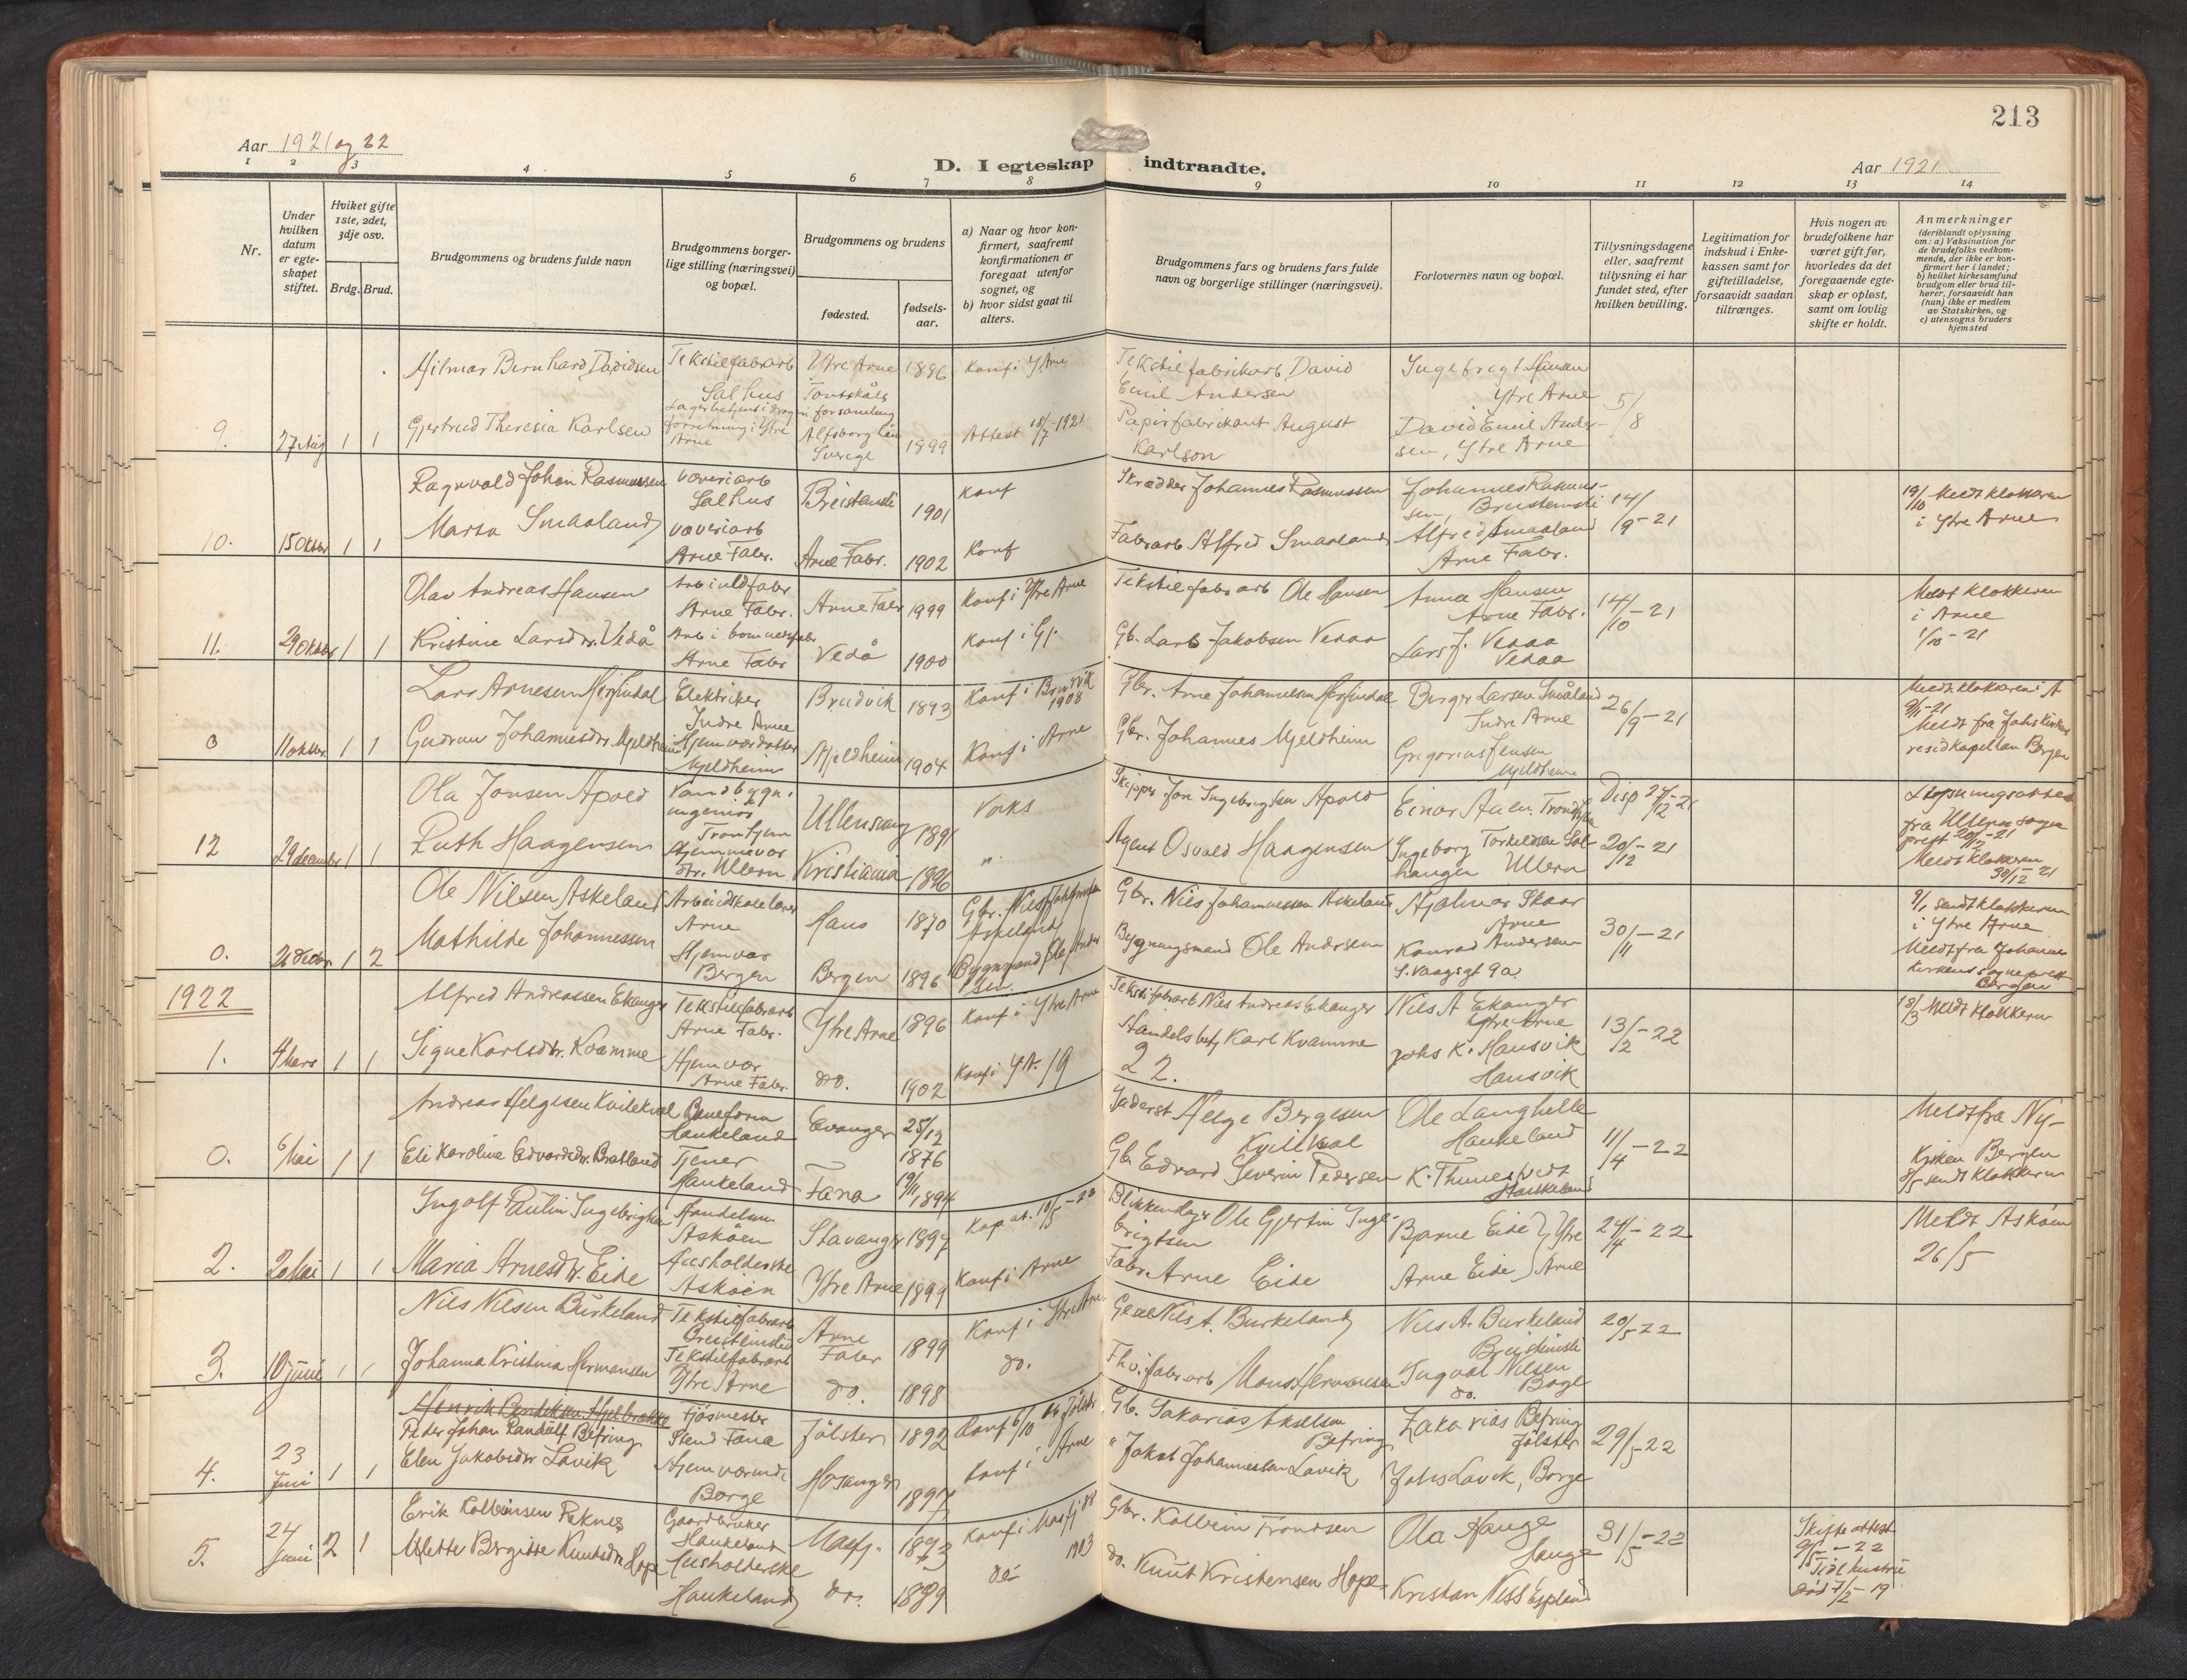 213
Aar 1921 og 22
D. I egteskap indtraadte.
Aar 1921
1 2 3 4 5 6 7 8 9 10 11 12 13 14
Nr.
Under hvilken datum er egteskapet stiftet.
Hviket gifte 1ste, 2det, 3dje osv.
Brdg. Brud.
Brudgommens og brudens fulde navn
Brudgommens borgerlige stilling (næringsvei) og bopæl.
Brudgommens og brudens
fødested.
fødsels-aar.
a) Naar og hvor konfirmert, saafremt konfirmationen er foregaat utenfor sognet, og
b) hvor sidst gaat til alters.
Brudgommens fars og brudens fars fulde navn og borgerlige stillinger (næringsvei).
Forlovernes navn og bopæl.
Tillysningsdagene eller, saafremt tillysning ei har fundet sted, efter hvilken bevilling.
Legitimation for indskud i Enkekassen samt for giftetilladelse, forsaavidt saadan tiltrænges.
Hvis nogen av brudefolkene har været gift før, hvorledes da det foregaaende egteskap er opløst, samt om lovlig skifte er holdt.
Anmerkninger
(deriblandt oplysning om: a) Vaksination for de brudefolks vedkommende, der ikke er konfirmert her i landet; b) hvilket kirkesamfund brudgom eller brud tilhører, forsaavidt han (hun) ikke er medlem av Statskirken, og c) utensogns bruders hjemsted
Hilmar Bernhard Davidsen Tekstilfabrarb Salhus Ytre Arne 1886 Konf i Y Arne Tekstilfabrikarb David Emil Andersen Ingebregt Hansen Ytre Arne
9. 27 Aug 1 1 Gjertrud Theresia Karlsen forretning i Ytre Arne Alfsborg län Sverege 1899 Attest 18/7-1921 Papirfabrikant August Karlson David Emil Andersen, Ytre Arne 5/8
Ragnvald Johan Rasmussen Væveriarb Salhus Breistenslei 1901 Konf Skrædder Johannes Rasmussen Johannes Rasmussen, Breistenslei 14/9-21 19/10 Meldt klokkeren i Ytre Arne
10. 15 Oktbr 1 1 Marta Smaaland væveriarb Arne Fabr. Arne Fabr. 1902 Konf Fabrarb Alfred Smaaland Alfred Smaaland Arne Fabr.
Olav Andreas Hansen Arb i uldfabr Arne Fabr. Arne Fabr 1899 Konf i Ytre Arne Tekstilfabrarb Ole Hansen Anna Hansen Arne Fabr. 14/10-21 Meldt Klokkeren i Arne 1/10-21
11. 29 Oktbr 1 1 Kristine Larsdtr. Vedå Arne Fabr Vedå 1900 Konf i Gj. Gb. Lars Jakobsen Vedaa Lars J. Vedaa Vedaa
Lars Arnesen Herfindal Elektriker Indre Arne Bruvik 1893 Konf i Bruvik 1908 Gbr. Arne Johannesen Herfindal Birger Larsen Småland Indre Arne 26/9-21 Meldt klokkeren i A
0 11 Oktbr. 1 1 Gudrun Johannesdtr. Mjeldheim Hjemværdatter Mjeldheim Mjeldheim 1904 Konf i Arne Gbr. Johannes Mjeldheim Grigorius Jensen Mjeldheim Meldt fra Johs kirkens resid kapellan Bergen
Ola Jonsen Apold Vandbygn. ingeniør Trontjem Ullensvang 1891 Voks Skipper Jon Ingebrigtsen Apold Einar Disp 24/12-21
12 29 december 1 1 Ruth Haagensen Hjemmevær Ullern Kristiania 1896 " Agent Osvald Haagensen Ingeborg Torkeldsen Solhaugen Ullern 20/12-21 fra Ullern sogneprest 20/12-21 Meldt klokkeren 30/12 21
Ole Nilsen Askeland Arbeidskolelærer Arne Haus 1870 Gbr. Nils Johannessen Askeland Gbr. Nils Johannessen Askeland Hjalmar Skaar Arne 30/11-21 9/1 sendt klokkeren i Ytre Arne
0. 26 decbr. 1 2 Mathilde Johannessen Hjemvær Bergen Bergen 1896 Bygnmand Ole Andersen Bygningsmand Ole Andersen Konrad Andersen S. Vaagsgt 9a Meldt fra Johannes kirkens sogneprest Bergen
1922 Alfred Andreassen Ekanger Tekstilfabrarb Arne Fabr. Ytre Arne 1896 Konf i Ytre Arne Tekstilfabrarb Nils Andreas Ekanger Nils A Ekanger Ytre Arne 13/2-22 18/3 Meldt klokkern
1. 4 Mars 1 1 Signe Karlsdtr. Kvamme Hjemvær Arne Fabr. do. 1902 Konf i Y A. 19 Handelsbetj Karl Kvamme 22. Johs K. Hausvik Hausvik
Andreas Helgesen Kvilekval Baneform Haukeland Evanger 25/12 1876 Helge Bergesen Kvilekval Ole Langhelle Haukeland 11/4-22 Meldt fra Nykirken Bergen
0. 6 Mai 1 1 Eli Karolina Edvardsdtr. Bratland Tjener Haukeland Fana 19/11 1894 Gb. Edvard Severin Pedersen K. Thunestvedt Haukeland 8/5 sendt klokkern
Ingolf Paulin Ingebrigtsen Handelsm Askøen Stavanger 1897 Blikkenslager Ole Gjertin Ingebrigtsen Bjarne Eide Ytre Arne 24/4-22 Meldt Askøen 26/5
2. 20 Mai 1 1 Maria Arnesdtr. Eide Husholderske Askøen Ytre Arne 1899 Konf i Arne Fabr. Arne Eide Arne Eide
Nils Nilsen Burkeland Tekstilfabrarb Breistenslei Arne Fabr 1899 Konf i Ytre Arne Nils A. Burkeland Nils A. Burkeland Breistenslei 20/5 22
3. 10 juni 1 1 Johanna Kristina Hermansen Tekstilfabrarb Ytre Arne do. 1898 do. Fhv. fabrarb Mons Hermansen Ingvald Nilsen do. Borge
Peder Johan Randulf Befring Fjøsmester Stend Fana Jølster 1892 Konf 6/10 06 Jølster Gb. Sakarias Akselsen Befring Zakarias Befring Jølster 29/5-22
4. 23 Juni 1 1 Elen Jakobsdtr Lavik Hjemværende Borge Hosanger 1897 Konf i Arne " Jakob Johannessen Lavik Johs Lavik, Borge
Erik Kolbeinsen Reknes Gaardbruker Haukeland Masfj. 1873 Konf i Masfj 88 Gbr. Kolbein Trondsen Ola Hauge Hauge 31/5-22 Skifte attest 9/5-22
5. 24 Juni 2 1 Mette Bergitte Knutsdtr Hope Husholderske Haukeland do. 1889 do 1903 do. Knut Kristensen Hope Kristian Ness Espeland Tidl hustru død 7/2-19